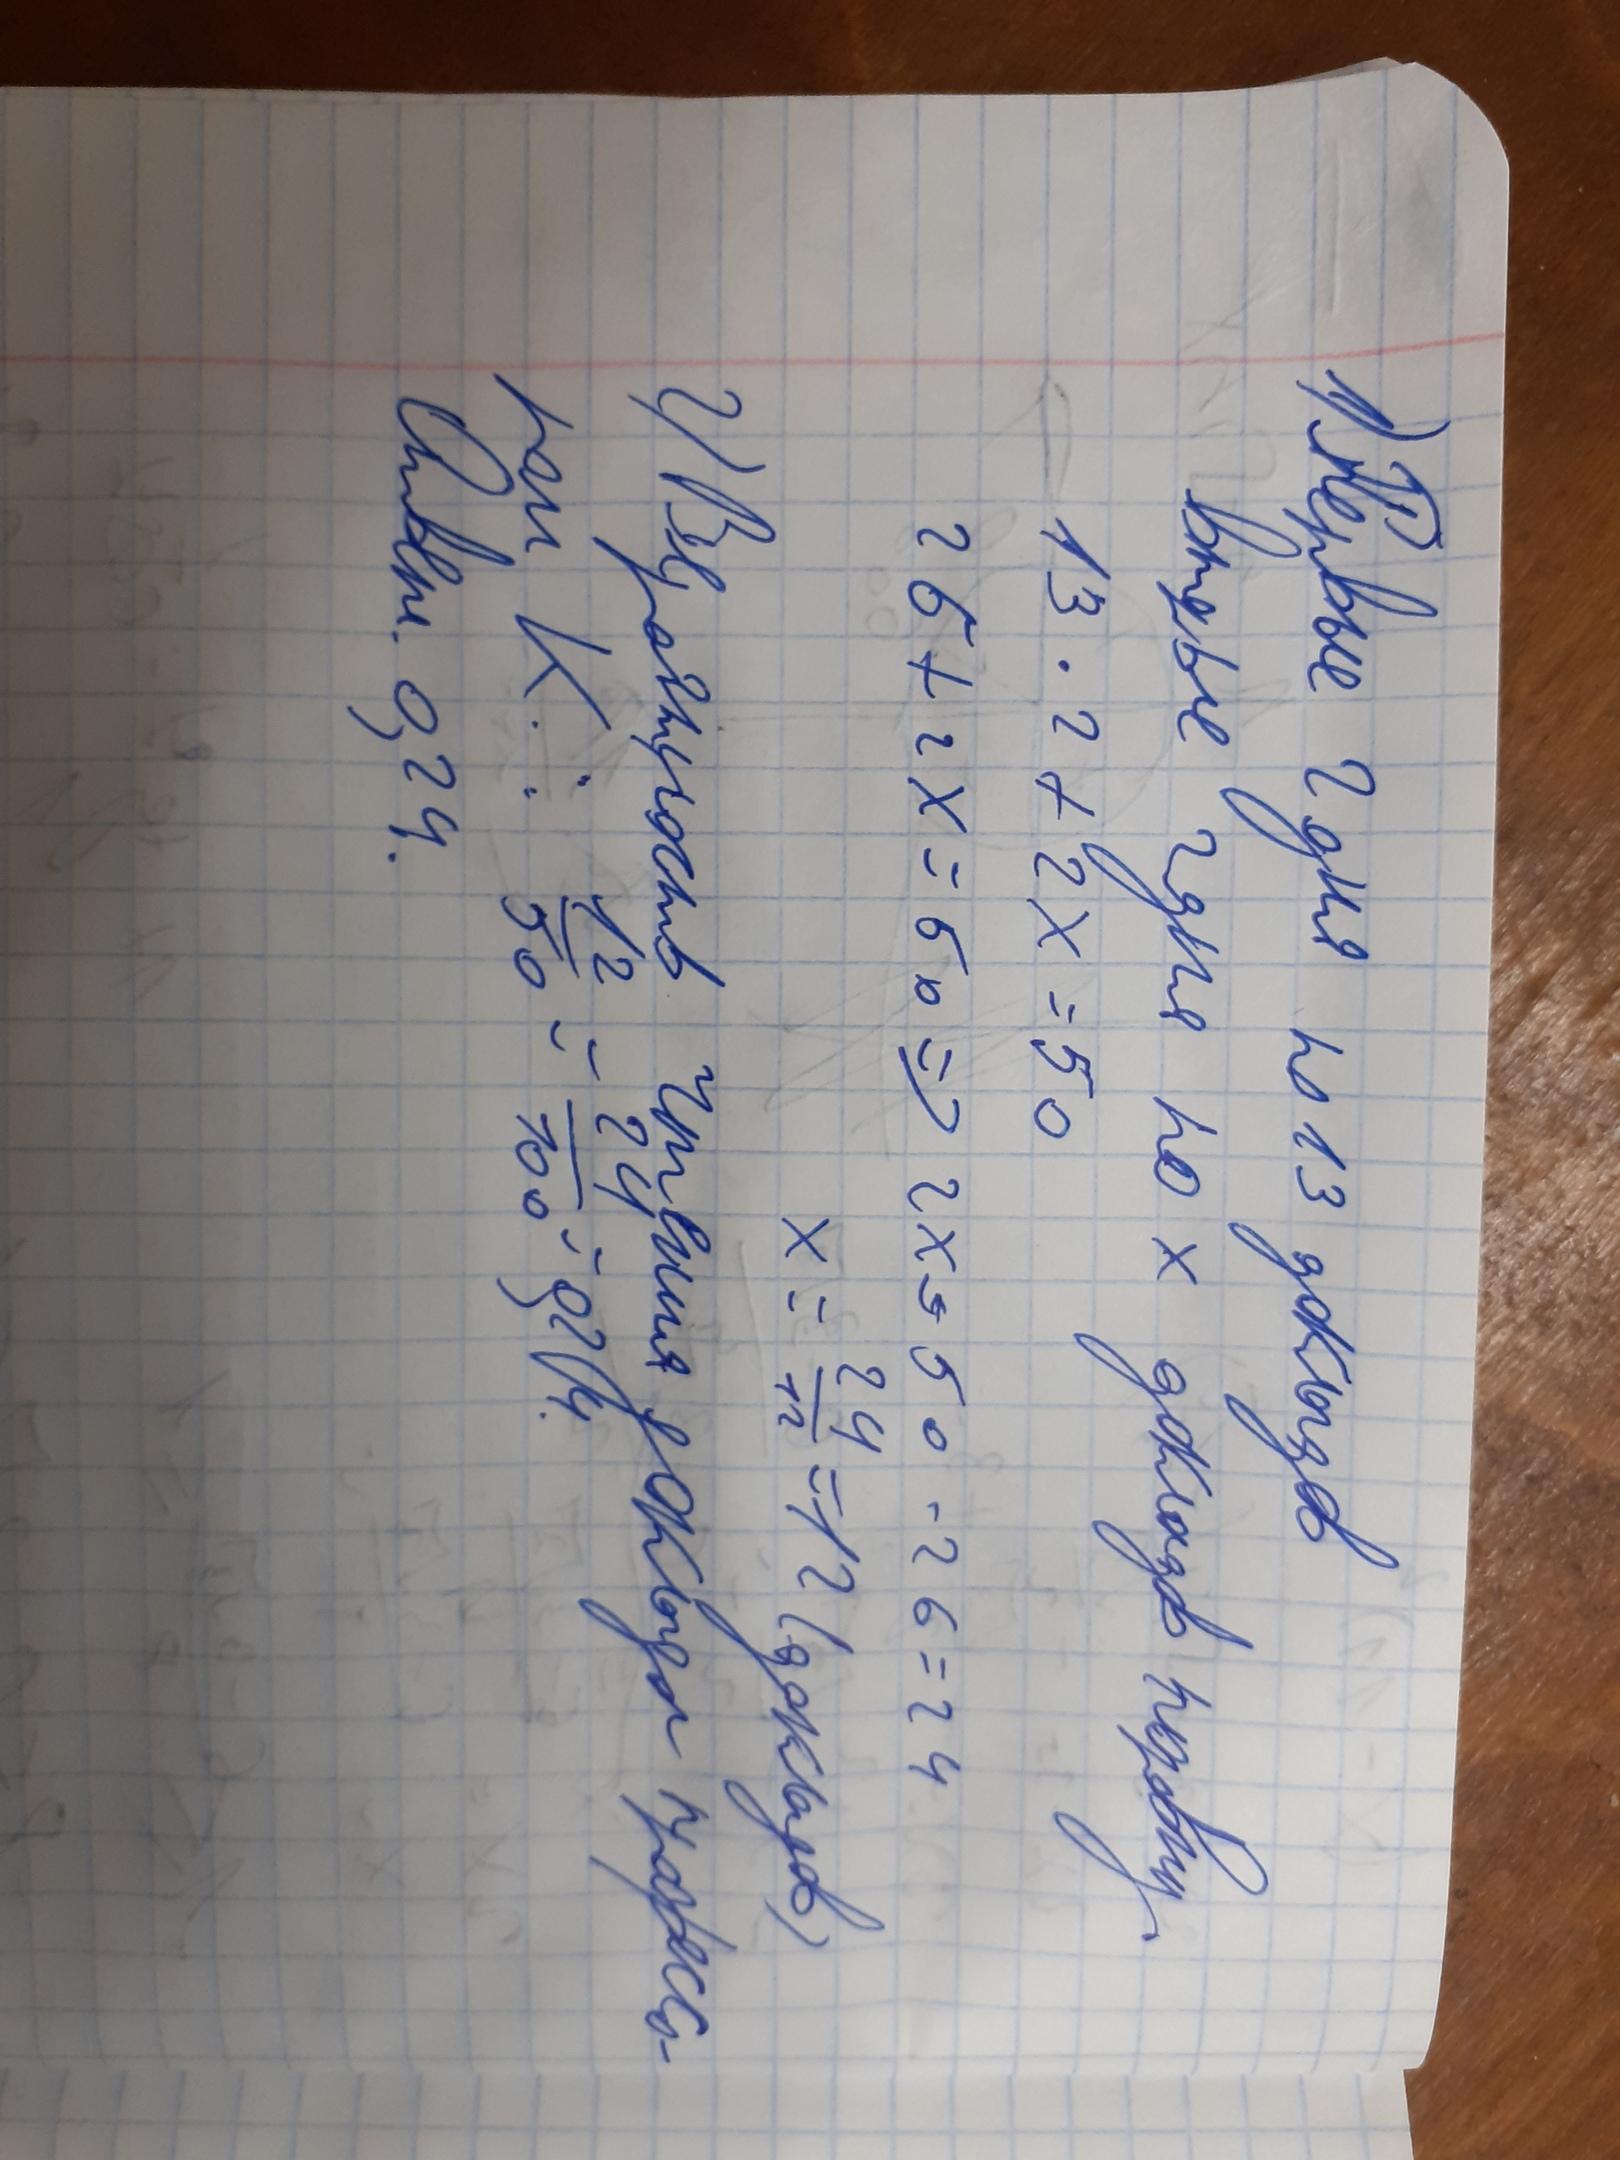 1) Первые 2 дня по 13 докладов
вторые 2 дня по x докладов поровну.
13 · 2 + 2x = 50
26 + 2x = 50 => 2x = 50 - 26 = 24
x = 24/12 = 12 (докладов)
2) Вероятность чтения доклада профессо-
ром К.: 12/50 = 24/100 = 0,24.
Ответ. 0,24.